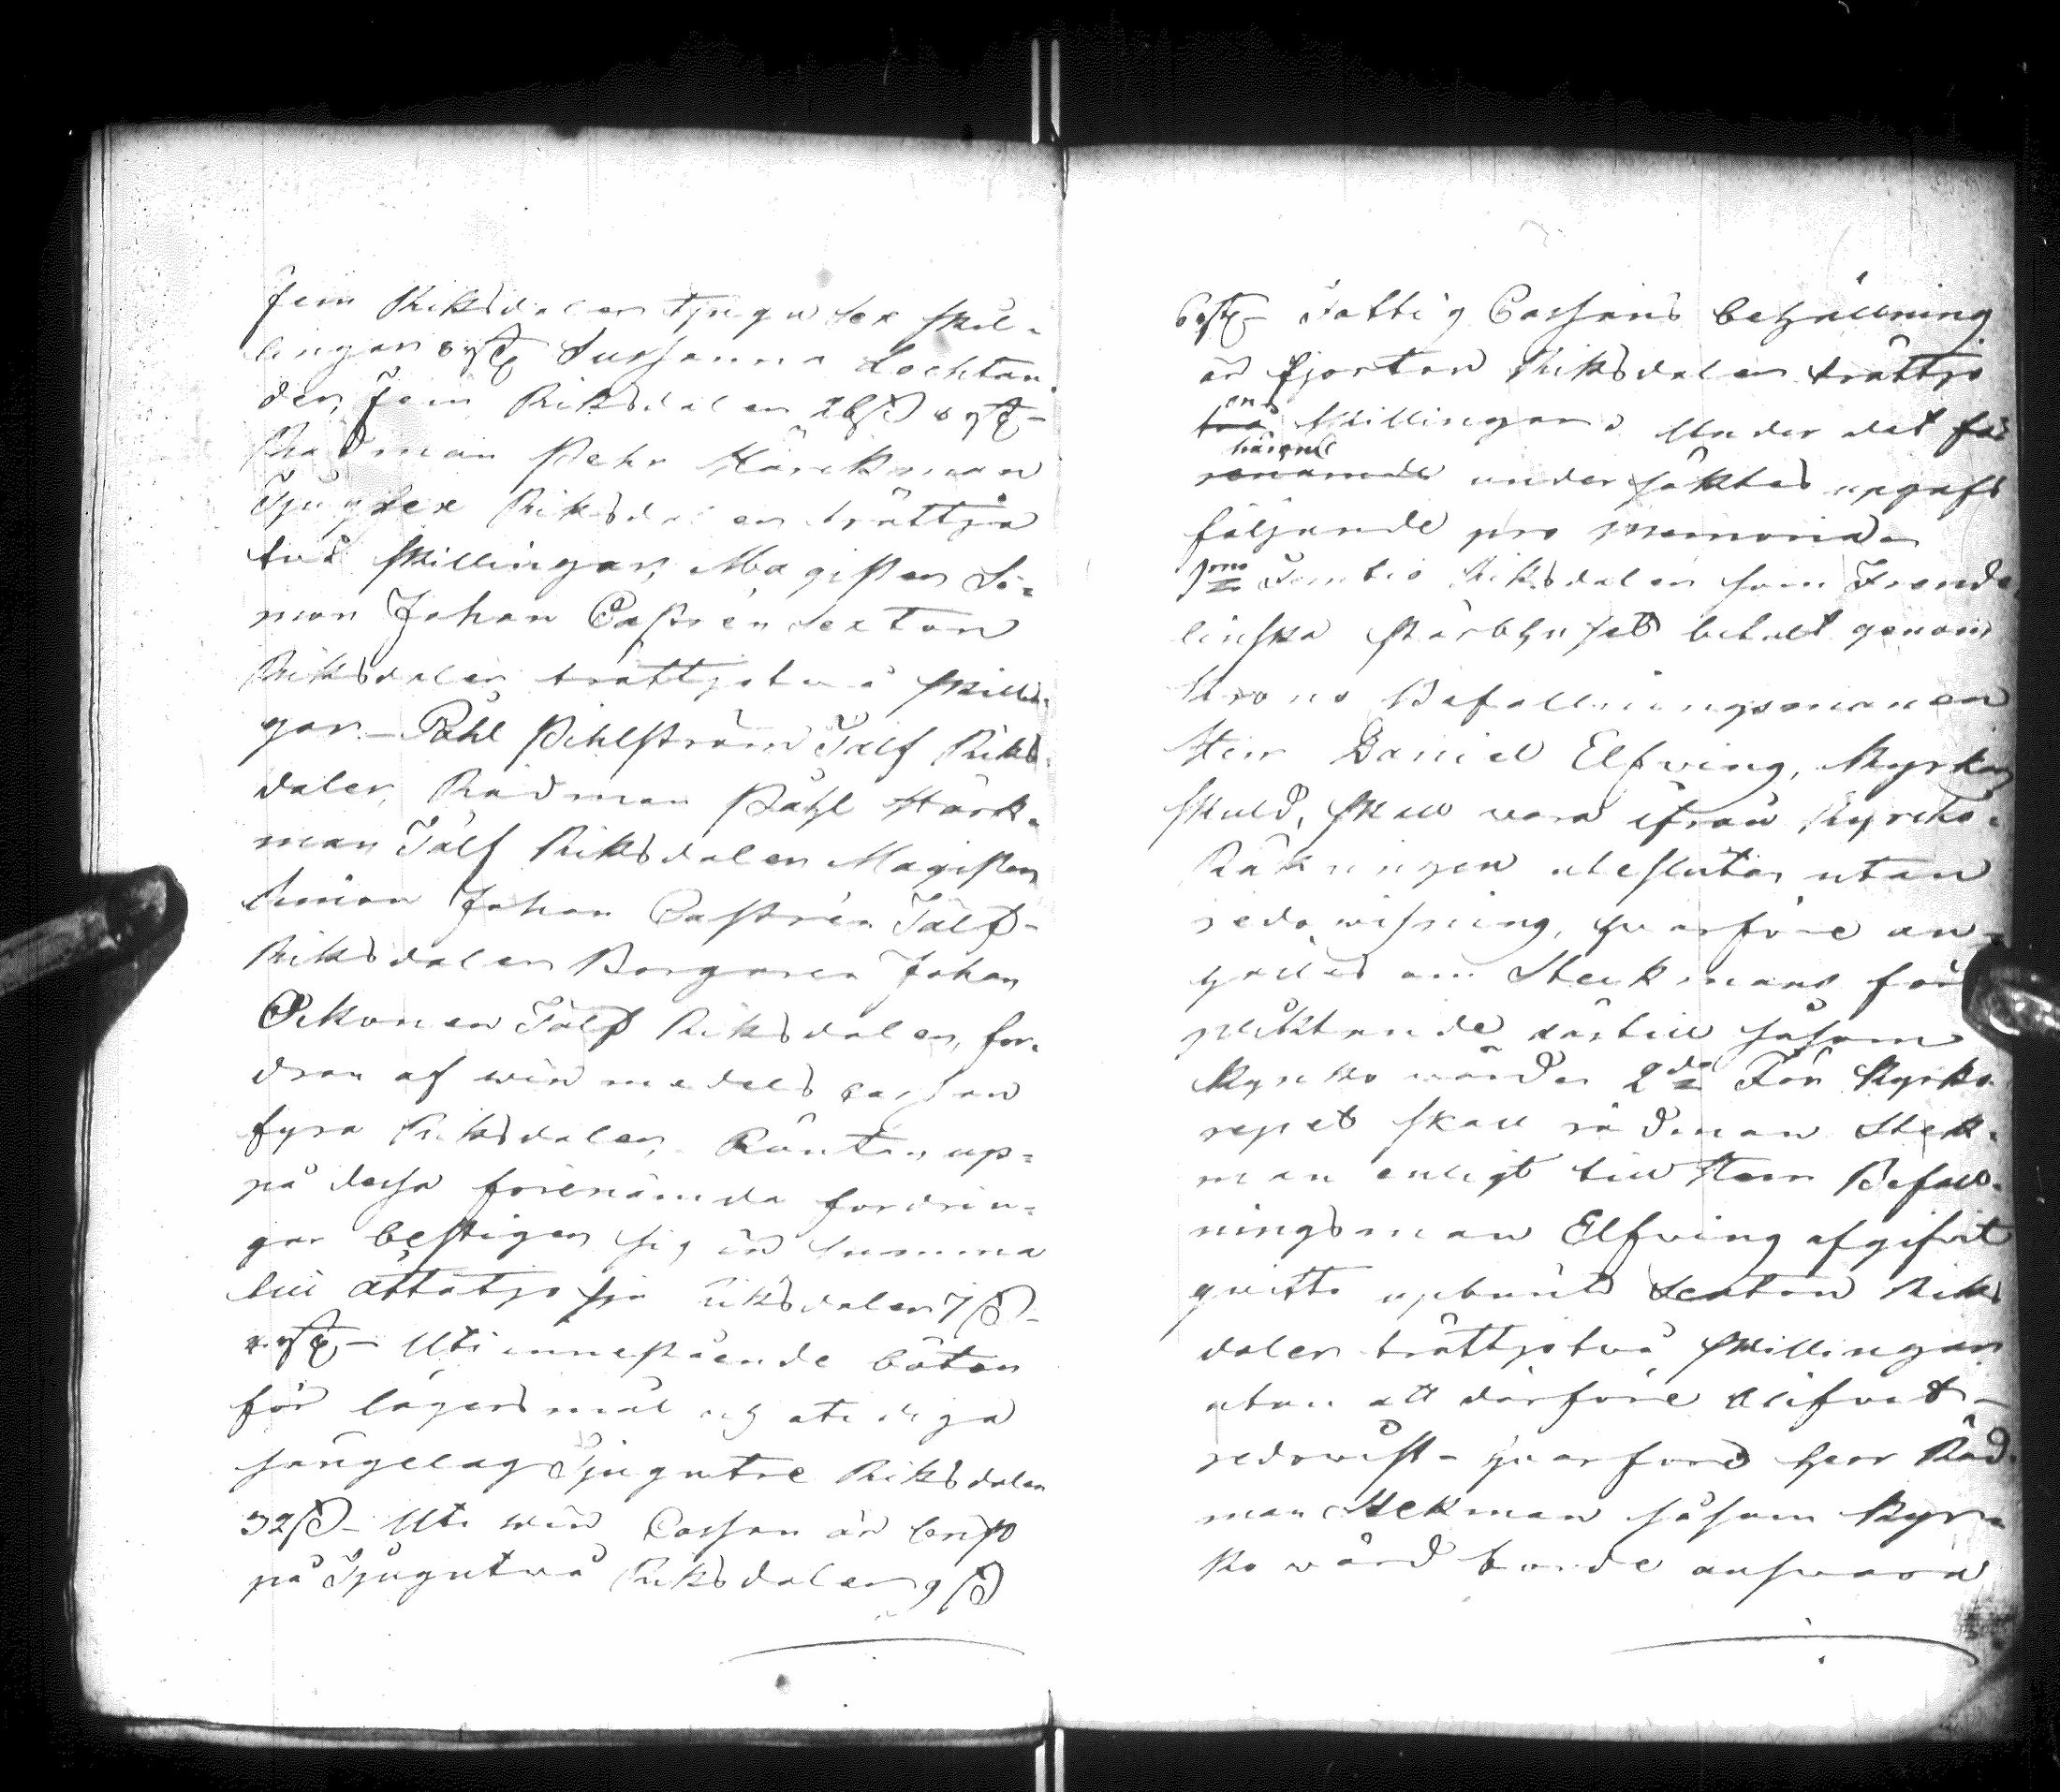 fem Riksdaler tjugu sex skil-
lingar 8 rst Sussanna Lochtan-
der, fem Riksdaler 26 s 8 rst -
Rådman Pehr Härckman
Tjugsex Riksdaler trättjo
två skillingar, Magister Si-
mon Johan Castrén sexton
Riksdaler trättjotvå skillin-
gar - Påhl Pihlström Tålf Riks-
daler, Rådman Påhl Härk-
man Tålf Riksdaler Magister
Simon Johan Castrén Tålf -
Riksdaler Borgaren Johan
Tålf Riksdaler, for-
dran af win medels cassan
fyra Riksdaler, Räntan up-
på dessa förenämda fordrin-
gar bestiger sig in summa
till åttatjo sju riksdaler 7 s -
rst - Uti innestående böter
för lägersmål och otidiga
sängelag Tjugutre Riksdaler
32 s - Uti win Cassan är brist
på Tjugutwå Riksdaler 9 s
6 rst - Fattig Cassans behållning
är fjorton Riksdaler trättjo
en
två skillingar. Under det fö-
härend
renämde undersöktes uppgafs
följande pro memoria
1mo Femtio Riksdaler som
linska stärbhuset betalt genom
Krono Befallningsmannen
Herr Daniel Elfving, Kyrkans
skuld, skall vara ifrån Kyrko-
Räkningen uteslutar utan
redowisning, hvarföre an-
hålles om Steckmans för
pliktande därtill såsom
Kyrko wärder 2do För Kyrko
repet skall rådman Stek-
man enligt till Herr Befall-
ningsman Elfving afgifvit
quitto upburit sexton Riks
daler trättjotwå skillingar
utan att därföre blifvet -
redowist - hvarföre herr Råd-
man Stekman såsom Kyr-
ko wärd borde answara